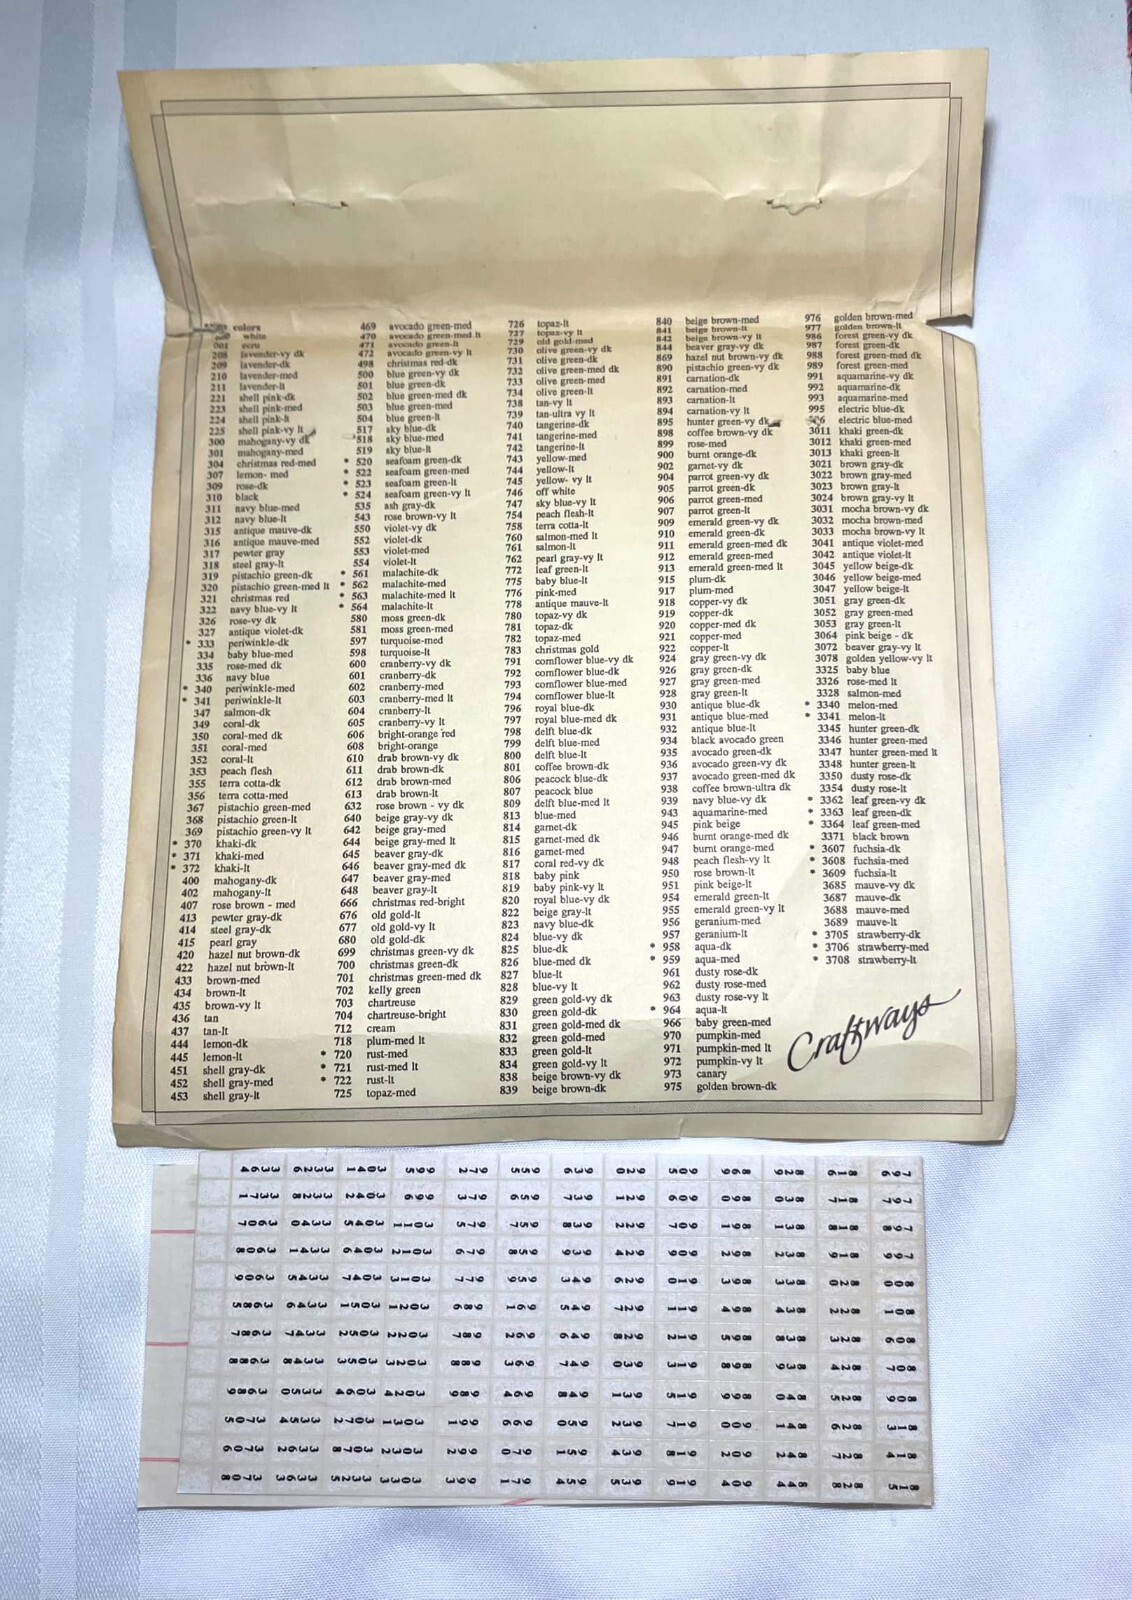 colors
white
001 ecru
208 lavender-vy dk
209 lavender-dk
210 lavender-med
211 lavender-lt
221 shell pink-dk
223 shell pink-med
224 shell pink-lt
225 shell pink-vy lt
300 mahogany-vy dk
301 mahogany-med
304 christmas red-med
307 lemon- med
309 rose-dk
310 black
311 navy blue-med
312 navy blue-lt
315 antique mauve-dk
316 antique mauve-med
317 pewter gray
318 steel gray-lt
319 pistachio green-dk
320 pistachio green-med lt
321 christmas red
322 navy blue-vy lt
326 rose-vy dk
327 antique violet-dk
* 333 periwinkle-dk
334 baby blue-med
335 rose-med dk
336 navy blue
* 340 periwinkle-med
* 341 periwinkle-lt
347 salmon-dk
349 coral-dk
350 coral-med dk
351 coral-med
352 coral-lt
353 peach flesh
355 terra cotta-dk
356 terra cotta-med
367 pistachio green-med
368 pistachio green-lt
369 pistachio green-vy lt
* 370 khaki-dk
* 371 khaki-med
* 372 khaki-lt
400 mahogany-dk
402 mahogany-lt
407 rose brown - med
413 pewter gray-dk
414 steel gray-dk
415 pearl gray
420 hazel nut brown-dk
422 hazel nut brown-lt
433 brown-med
434 brown-lt
435 brown-vy lt
436 tan
437 tan-lt
444 lemon-dk
445 lemon-lt
451 shell gray-dk
452 shell gray-med
453 shell gray-lt
469 avocado green-med
470 avocado green-med lt
471 avocado green-lt
472 avocado green-vy lt
498 christmas red-dk
500 blue green-vy dk
501 blue green-dk
502 blue green-med dk
503 blue green-med
504 blue green-lt
517 sky blue-dk
518 sky blue-med
519 sky blue-lt
* 520 seafoam green-dk
* 522 seafoam green-med
* 523 seafoam green-lt
* 524 seafoam green-vy lt
535 ash gray-dk
543 rose brown-vy lt
550 violet-vy dk
552 violet-dk
553 violet-med
554 violet-lt
* 561 malachite-dk
* 562 malachite-med
* 563 malachite-med lt
* 564 malachite-lt
580 moss green-dk
581 moss green-med
597 turquoise-med
598 turquoise-lt
600 cranberry-vy dk
601 cranberry-dk
602 cranberry-med
603 cranberry-med lt
604 cranberry-lt
605 cranberry-vy lt
606 bright-orange red
608 bright-orange
610 drab brown-vy dk
611 drab brown-dk
612 drab brown-med
613 drab brown-lt
632 rose brown - vy dk
640 beige gray-vy dk
642 beige gray-med
644 beige gray-med lt
645 beaver gray-dk
646 beaver gray-med dk
647 beaver gray-med
648 beaver gray-lt
666 christmas red-bright
676 old gold-lt
677 old gold-vy lt
680 old gold-dk
699 christmas green-vy dk
700 christmas green-dk
701 christmas green-med dk
702 kelly green
703 chartreuse
704 chartreuse-bright
712 cream
718 plum-med lt
* 720 rust-med
* 721 rust-med lt
* 722 rust-lt
725 topaz-med
726 topaz-lt
727 topaz-vy lt
729 old gold-med
730 olive green-vy dk
731 olive green-dk
732 olive green-med dk
733 olive green-med
734 olive green-lt
738 tan-vy lt
739 tan-ultra vy lt
740 tangerine-dk
741 tangerine-med
742 tangerine-lt
743 yellow-med
744 yellow-lt
745 yellow- vy lt
746 off white
747 sky blue-vy lt
754 peach flesh-lt
758 terra cotta-lt
760 salmon-med lt
761 salmon-lt
762 pearl gray-vy lt
772 leaf green-lt
775 baby blue-lt
776 pink-med
778 antique mauve-lt
780 topaz-vy dk
781 topaz-dk
782 topaz-med
783 christmas gold
791 cornflower blue-vy dk
792 cornflower blue-dk
793 cornflower blue-med
794 cornflower blue-lt
796 royal blue-dk
797 royal blue-med dk
798 delft blue-dk
799 delft blue-med
800 delft blue-lt
801 coffee brown-dk
806 peacock blue-dk
807 peacock blue
809 delft blue-med lt
813 blue-med
814 garnet-dk
815 garnet-med dk
816 garnet-med
817 coral red-vy dk
818 baby pink
819 baby pink-vy lt
820 royal blue-vy dk
822 beige gray-lt
823 navy blue-dk
824 blue-vy dk
825 blue-dk
826 blue-med dk
827 blue-lt
828 blue-vy lt
829 green gold-vy dk
830 green gold-dk
831 green gold-med dk
832 green gold-med
833 green gold-lt
834 green gold-vy lt
838 beige brown-vy dk
839 beige brown-dk
840 beige brown-med
841 beige brown-lt
842 beige brown-vy lt
844 beaver gray-vy dk
869 hazel nut brown-vy dk
890 pistachio green-vy dk
891 carnation-dk
892 carnation-med
893 carnation-lt
894 carnation-vy lt
895 hunter green-vy dk
898 coffee brown-vy dk
899 rose-med
900 burnt orange-dk
902 garnet-vy dk
904 parrot green-vy dk
905 parrot green-dk
906 parrot green-med
907 parrot green-lt
909 emerald green-vy dk
910 emerald green-dk
911 emerald green-med dk
912 emerald green-med
913 emerald green-med lt
915 plum-dk
917 plum-med
918 copper-vy dk
919 copper-dk
920 copper-med dk
921 copper-med
922 copper-lt
924 gray green-vy dk
926 gray green-dk
927 gray green-med
928 gray green-lt
930 antique blue-dk
931 antique blue-med
932 antique blue-lt
934 black avocado green
935 avocado green-dk
936 avocado green-vy dk
937 avocado green-med dk
938 coffee brown-ultra dk
939 navy blue-vy dk
943 aquamarine-med
945 pink beige
946 burnt orange-med dk
947 burnt orange-med
948 peach flesh-vy lt
950 rose brown-lt
951 pink beige-lt
954 emerald green-lt
955 emerald green-vy lt
956 geranium-med
957 geranium-lt
* 958 aqua-dk
* 959 aqua-med
961 dusty rose-dk
962 dusty rose-med
963 dusty rose-vy lt
* 964 aqua-lt
966 baby green-med
970 pumpkin-med
971 pumpkin-med lt
972 pumpkin-vy lt
973 canary
975 golden brown-dk
976 golden brown-med
977 golden brown-lt
986 forest green-vy dk
987 forest green-dk
988 forest green-med dk
989 forest green-med
991 aquamarine-vy dk
992 aquamarine-dk
993 aquamarine-med
995 electric blue-dk
electric blue-med
3011 khaki green-dk
3012 khaki green-med
3013 khaki green-lt
3021 brown gray-dk
3022 brown gray-med
3023 brown gray-lt
3024 brown gray-vy lt
3031 mocha brown-vy dk
3032 mocha brown-med
3033 mocha brown-vy lt
3041 antique violet-med
3042 antique violet-lt
3045 yellow beige-dk
3046 yellow beige-med
3047 yellow beige-lt
3051 gray green-dk
3052 gray green-med
3053 gray green-lt
3064 pink beige - dk
3072 beaver gray-vy lt
3078 golden yellow-vy lt
3325 baby blue
3326 rose-med lt
3328 salmon-med
* 3340 melon-med
* 3341 melon-lt
3345 hunter green-dk
3346 hunter green-med
3347 hunter green-med lt
3348 hunter green-lt
3350 dusty rose-dk
3354 dusty rose-lt
* 3362 leaf green-vy dk
* 3363 leaf green-dk
* 3364 leaf green-med
3371 black brown
* 3607 fuchsia-dk
* 3608 fuchsia-med
* 3609 fuchsia-lt
3685 mauve-vy dk
3687 mauve-dk
3688 mauve-med
3689 mauve-lt
* 3705 strawberry-dk
* 3706 strawberry-med
* 3708 strawberry-lt
Craftways
3364 3326 3041 995 972 955 936 920 905 869 829 816 796
3371 3328 3042 996 973 956 937 921 906 890 830 817 797
3607 3340 3045 3011 975 957 938 922 907 891 831 818 798
3608 3341 3046 3012 976 958 939 924 909 892 832 819 799
3609 3345 3047 3013 977 959 943 926 910 893 833 820 800
3685 3346 3051 3021 986 961 945 927 911 894 834 822 801
3687 3347 3052 3022 987 962 946 928 912 895 838 823 806
3688 3348 3053 3023 988 963 947 930 913 898 839 824 807
3689 3350 3064 3024 989 964 948 931 915 899 840 825 809
3705 3354 3072 3031 991 966 950 932 917 900 841 826 813
3706 3362 3078 3032 992 970 951 934 918 902 842 827 814
3708 3363 3325 3033 993 971 954 935 919 904 844 828 815